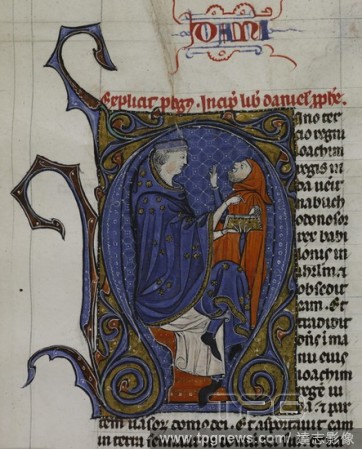 DANI
Explicit plogus. Incip lib danielis pphe.
Anno ter
cio regni
ioachim
regis iu
da uenit
nabuch
odonosor
rex babi
lonis in
ihrlm et
obsedit
eam. Et
tradidit
dns i ma
nu eius
ioachim
regē iu
da et par
tem uasor domus dei. Et asportauit eam
in terra sennaar
TPG
www.tpgnews.com/達志影像